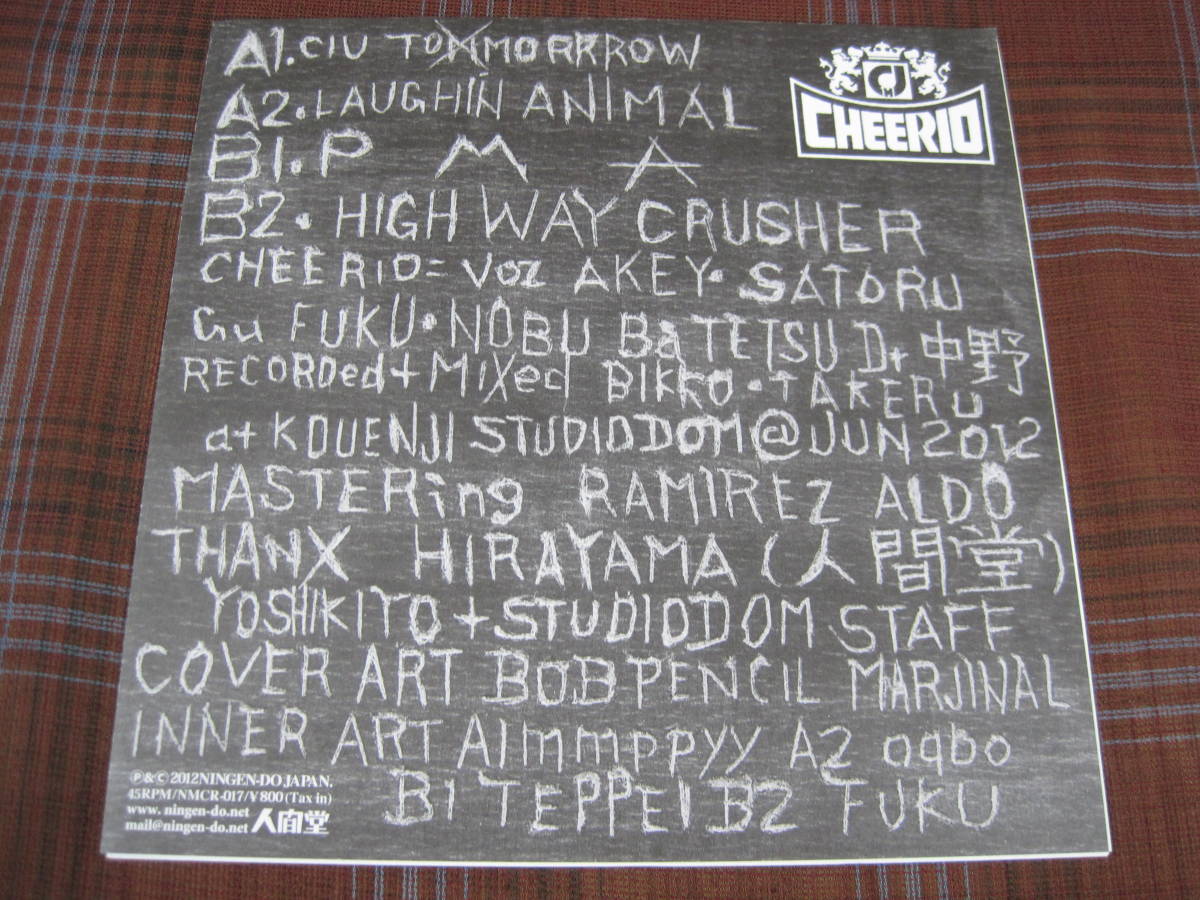 A1.CIU TOXMORRROW
A2.LAUGHIN ANIMAL
CHEERIO
B1.P M A
B2. HIGH WAY CRUSHER
CHEERIO= Voz AKEY・SATORU
Gu FUKU・NOBU Ba TETSU Dr 中野
RECORDed+MIXed BIKKO・TAKERU
at KOUENJI STUDIODOM@JUN2012
MASTERing RAMIREZ ALDO
THANX HIRAYAMA (人間堂)
YOSHIKIYO+STUDIODOM STAFF
COVER ART BOBPENCIL MARJINAL
INNER ART A1mmppyy A2 oqbo
B1 TEPPEI B2 FUKU
℗&© 2012NINGEN-DO JAPAN.
45RPM/NMCR-017/¥800(Tax in)
www. ningen-do.net
mail@ningen-do.net 人間堂